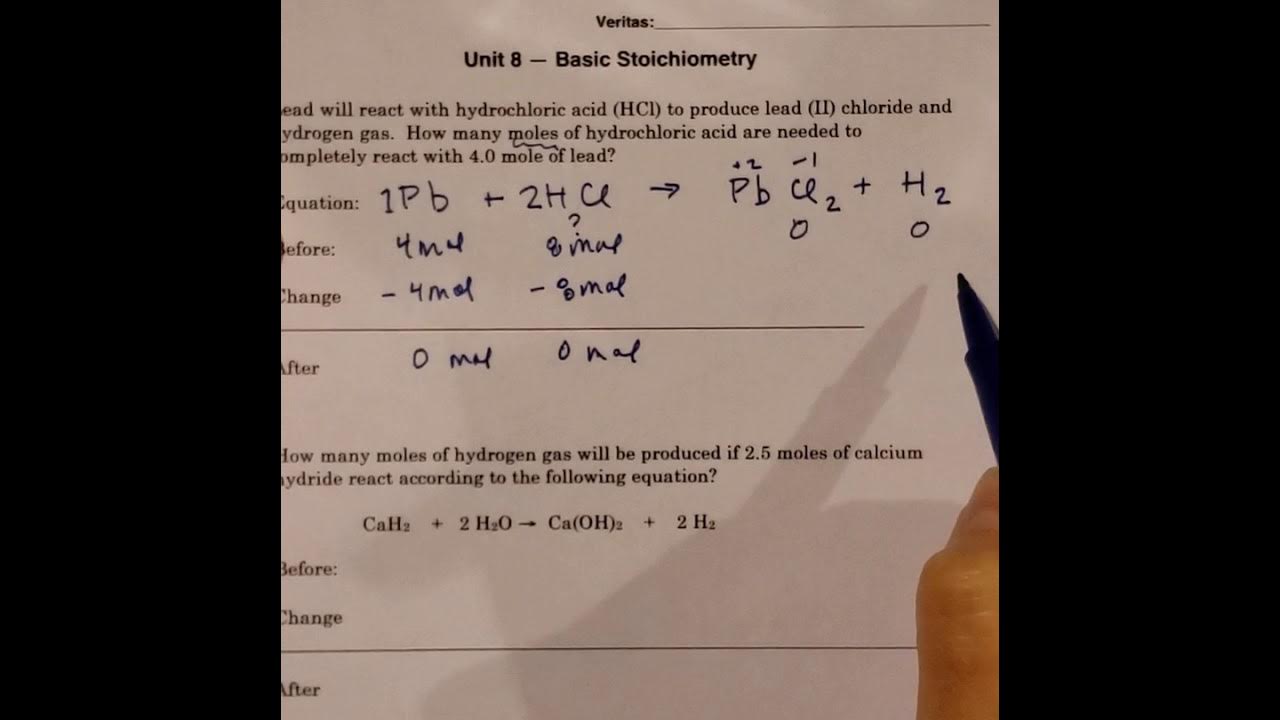 Veritas:
Unit 8 — Basic Stoichiometry
ead will react with hydrochloric acid (HCl) to produce lead (II) chloride and
ydrogen gas. How many moles of hydrochloric acid are needed to
ompletely react with 4.0 mole of lead?
+2 -1
Equation: 1Pb + 2HCl → PbCl₂ + H₂
? 0 0
Before: 4mol 8mol
Change - 4mol - 8mol
After 0 mol 0 mol
How many moles of hydrogen gas will be produced if 2.5 moles of calcium
ydride react according to the following equation?
CaH₂ + 2 H₂O → Ca(OH)₂ + 2 H₂
Before:
Change
After